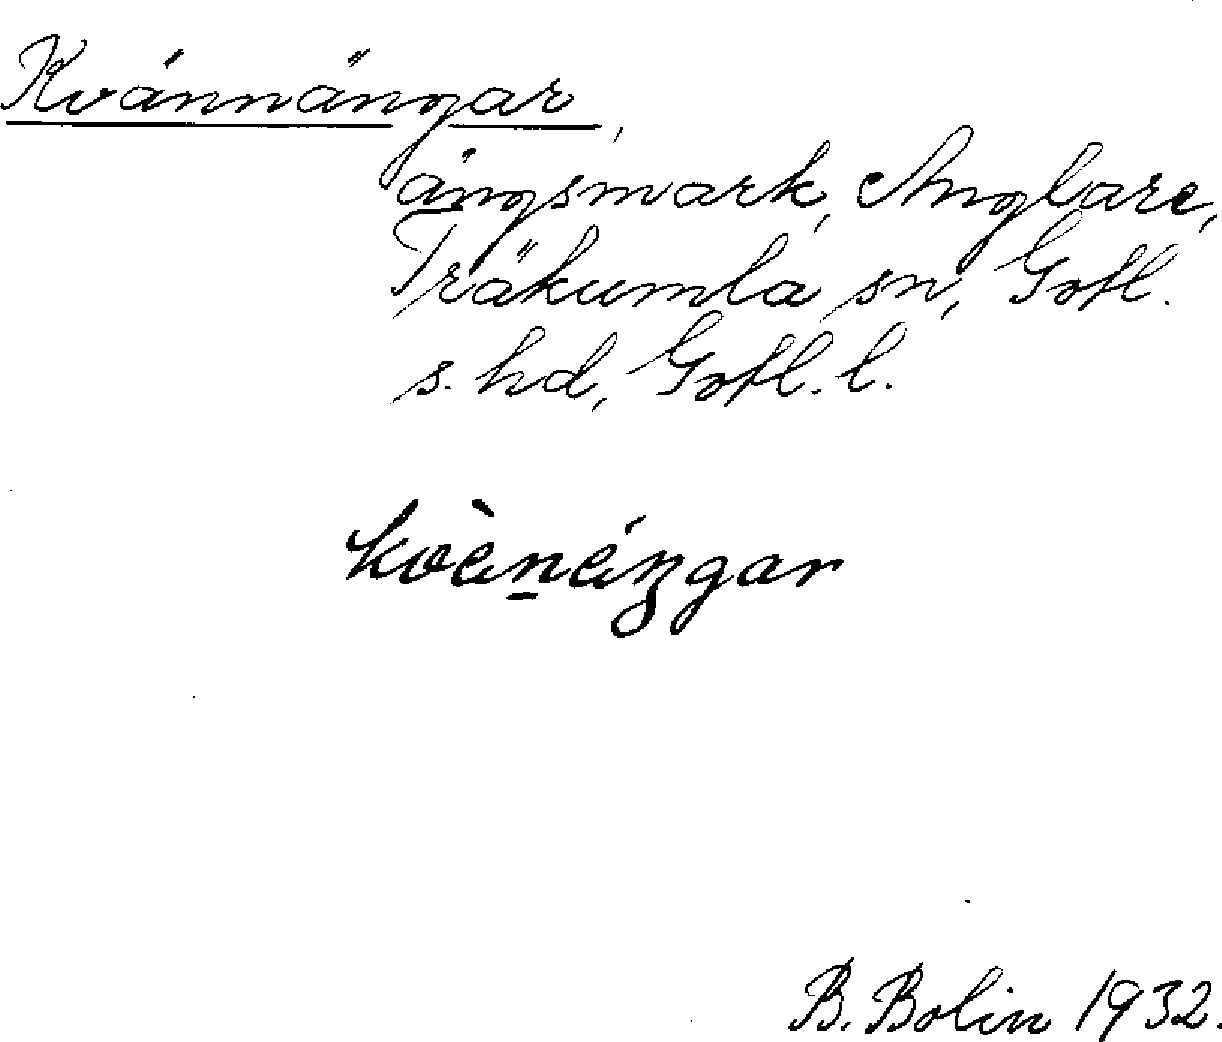 Kvännängar,
ängsmark, Anglare,
Träkumla sn, Gotl.
s. hd, Gotl. l.
B. Bolin 1932.